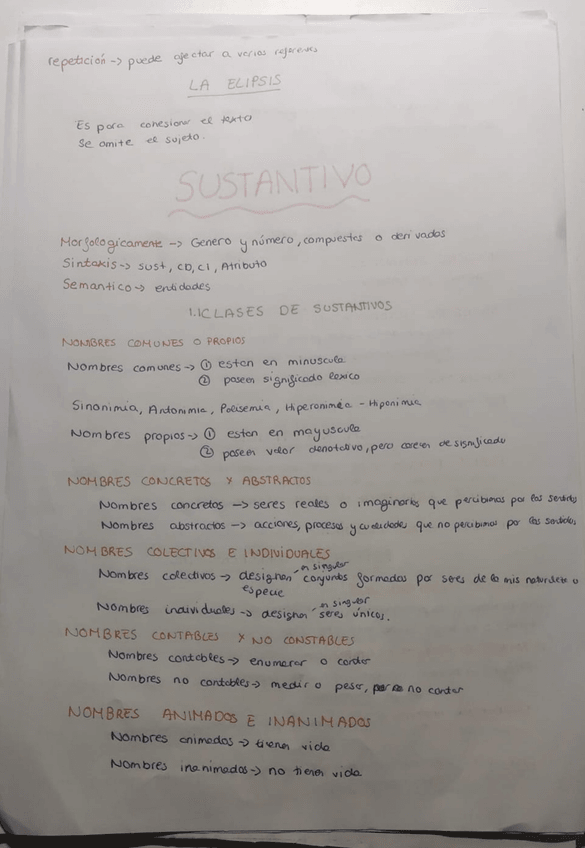 repetición -> puede afectar a varios referentes
LA ELIPSIS
Es para cohesionar el texto
Se omite el sujeto.
SUSTANTIVO
Morfologicamente -> Genero y número, compuestos o derivados
Sintaxis -> sust, CD, CI, Atributo
Semantico -> entidades
1.1 CLASES DE SUSTANTIVOS
NOMBRES COMUNES O PROPIOS
Nombres comunes -> ① estan en minuscula
② poseen significado lexico
Sinonimia, Antonimia, Polisemia, Hiperonimia - Hiponimia
Nombres propios -> ① estan en mayuscula
② poseen valor denotativo, pero carecen de significado
NOMBRES CONCRETOS Y ABSTRACTOS
Nombres concretos -> seres reales o imaginarios que percibimos por los sentidos
Nombres abstractos -> acciones, procesos y cualidades que no percibimos por los sentidos
NOMBRES COLECTIVOS E INDIVIDUALES
Nombres colectivos -> designan en singular conjuntos formados por seres de la mis naturaleza o
especie
Nombres individuales -> designan en singular seres únicos.
NOMBRES CONTABLES Y NO CONSTABLES
Nombres contables -> enumerar o contar
Nombres no contables -> medir o pesar, no contar
NOMBRES ANIMADOS E INANIMADOS
Nombres animados -> tienen vida
Nombres inanimados -> no tienen vida